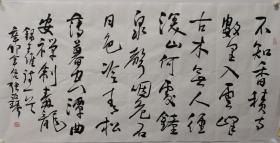 不知香積寺
數里入雲峰
古木無人徑
深山何處鐘
泉聲咽危石
日色冷青松
薄暮空潭曲
安禪制毒龍
錄王維詩一首